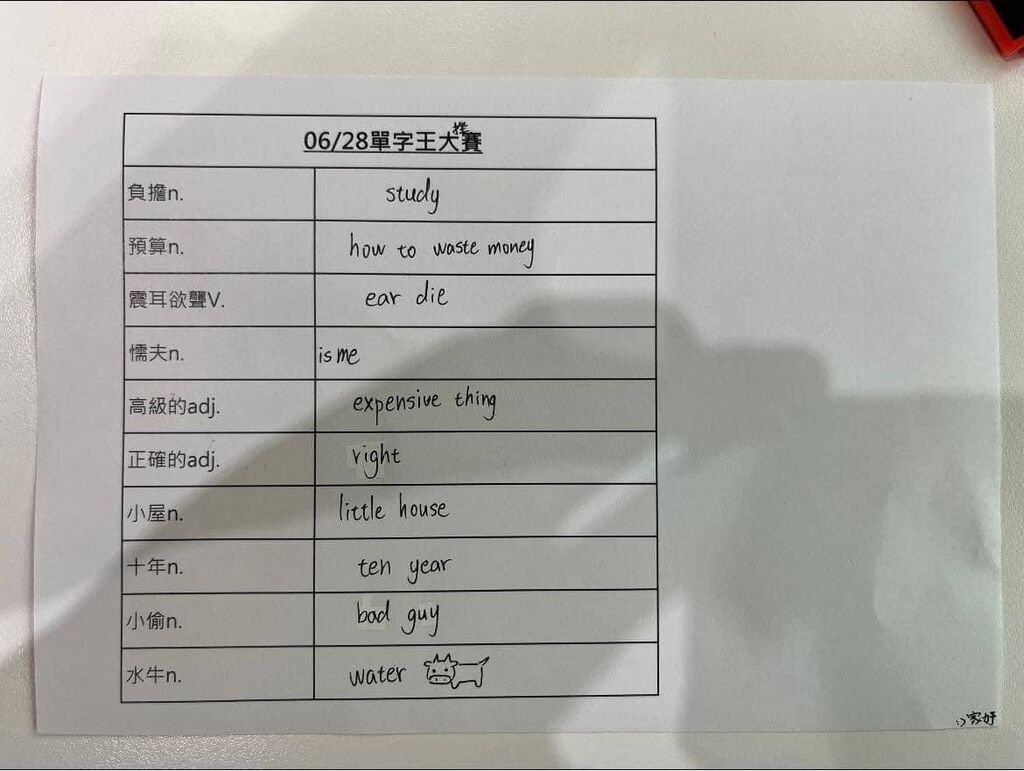 06/28單字王大賽
負擔n. study
預算n. how to waste money
震耳欲聾V. ear die
懦夫n. is me
高級的adj. expensive thing
正確的adj. right
小屋n. little house
十年n. ten year
小偷n. bad guy
水牛n. water
:) 家妤